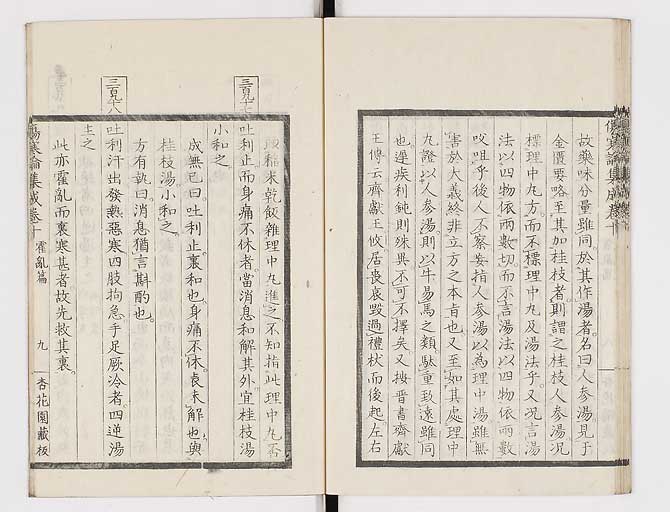 傷寒論集成卷十
故藥味分量雖同於其作湯者名曰人參湯見于
金匱要略至其加桂枝者則謂之桂枝人參湯況
標理中九方而不標理中九及湯法乎又況言湯
法以四物依兩數切而不言湯法以四物依兩數
㕮咀乎後人不察妄指人參湯以為理中湯雖無
害於大義終非立方之本旨也又至如其處理中
九證以人參湯則以牛易馬之類駄重致遠雖同
也遲疾利鈍則殊異不可不擇矣又按晉書齊獻
王傳云齊獻王攸居喪哀毀過禮杖而後起左右
稻米乾飯雜理中九進之不知指此理中九否
三百九十七
吐利止而身痛不休者當消息和解其外宜桂枝湯
小和之
成無已曰吐利止裏和也身痛不休表未解也與
桂枝湯小和之
方有執曰消息猶言斟酌也
三百九十八
吐利汗出發熱惡寒四肢拘急手足厥冷者四逆湯
主之
此亦霍亂而裏寒甚者故先救其裏
傷寒論集成卷十 霍亂篇 九 杏花園藏板